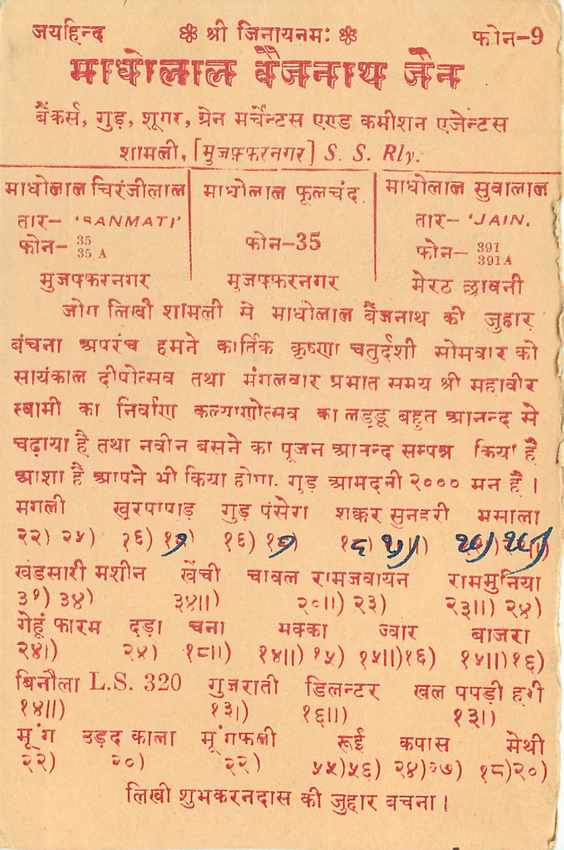 जयहिन्द ❀ श्री जिनायनमः ❀ फोन-9
माधोलाल वैजनाथ जैन
बैंकर्स, गुड़, शूगर, ग्रेन मर्चेन्टस एण्ड कमीशन एजेन्टस
शामली, [मुजफ़्फ़रनगर] S. S. Rly.
माधोलाल चिरंजीलाल माधोलाल फूलचंद माधोलाल सुवालाल
तार- 'SANMATI' तार- 'JAIN.
फोन- 35 35 A फोन-35 फोन- 391 391A
मुजफ्फरनगर मुजफ्फरनगर मेरट छावनी
जोग लिखी शामली से माधोलाल बैजनाथ की जुहार
बंचना अपरंच हमने कार्तिक कृष्णा चतुर्दशी सोमवार को
सायंकाल दीपोत्सव तथा मंगलवार प्रभात समय श्री महावीर
स्वामी का निर्वाण कल्याणोत्सव का लड्डू बहुत आनन्द से
चढ़ाया है तथा नवीन बसने का पूजन आनन्द सम्पन्न किया है
आशा है आपने भी किया होगा. गुड़ आमदनी २००० मन है ।
मगली खुरपापाड़ गुड़ पंसेरा शक्कर सुनहरी मसाला
२२) २४) १६) १६)
खंडसारी मशीन खेंची चावल रामजवायन राममुनिया
३१) ३४) ३४॥) २८॥) २३) २३॥) २४)
गेहूं फारम दड़ा चना मक्का ज्वार बाजरा
२४।) २४) १८॥) १४॥) १५) १५॥) १६) १५॥) १६)
बिनौला L.S. 320 गुजराती डिलन्टर खल पपड़ी हरी
१४॥) १३।) १६॥) १३।)
मूंग उड़द काला मूंगफली रूई कपास मेथी
२२) २०) २२) ५५) ५६) २४) १८) २०)
लिखी शुभकरनदास की जुहार बचना ।